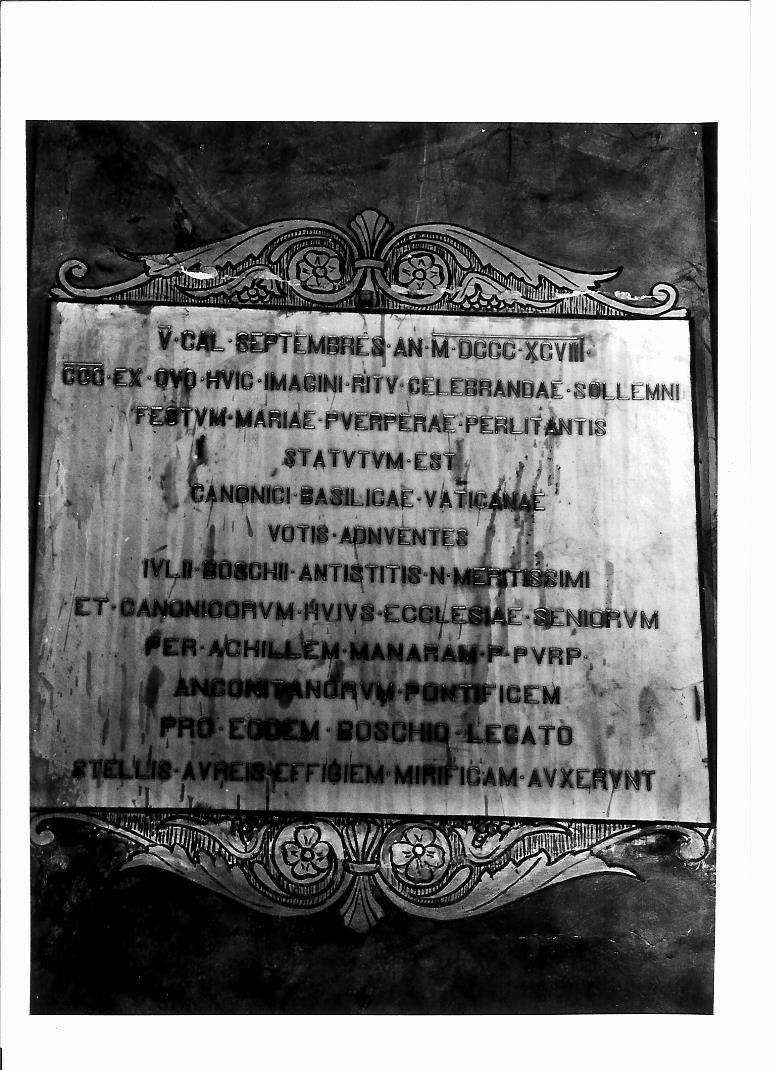 V̅·CAL·SEPTEMBRES·AN·M̅·D̅C̅C̅C̅·X̅C̅V̅I̅I̅I̅·
C̅C̅C̅·EX·QVO·HVIC·IMAGINI·RITV·CELEBRANDAE·SOLLEMNI
FESTVM·MARIAE·PVERPERAE·PERLITANTIS
STATVTVM·EST
CANONICI·BASILICAE·VATICANAE
VOTIS·ADNVENTES
IVLII·BOSCHII·ANTISTITIS·N·MERITISSIMI
ET·CANONICORVM·HVIVS·ECCLESIAE·SENIORVM
PER·ACHILLEM·MANARAM·P·PVRP·
ANCONITANORVM·PONTIFICEM
PRO·EODEM·BOSCHIO·LEGATO
STELLIS·AVREIS·EFFIGIEM·MIRIFICAM·AVXERVNT